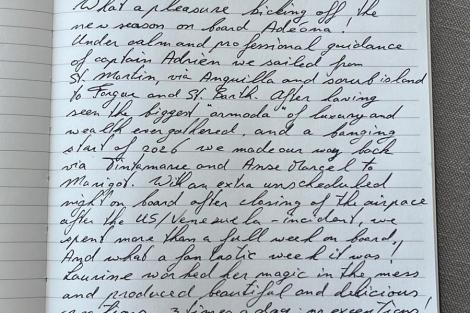 What a pleasure kicking off the
new season on board Adeona!
Under calm and professional guidance
of captain Adrien we sailed from
St. Martin, via Anguilla and scrub island
to Forgue and St. Barth. After having
seen the biggest "armada" of luxury and
wealth ever gathered, and a banging
start of 2026 we made our way back
via Tintamarre and Anse Marcel to
Marigot. With an extra unscheduled
night on board after closing of the airspace
after the US/Venezuela - incident, we
spent more than a full week on board,
And what a fantastic week it was!
Laurine worked her magic in the mess
and produced beautiful and delicious
creations 3 times a day: